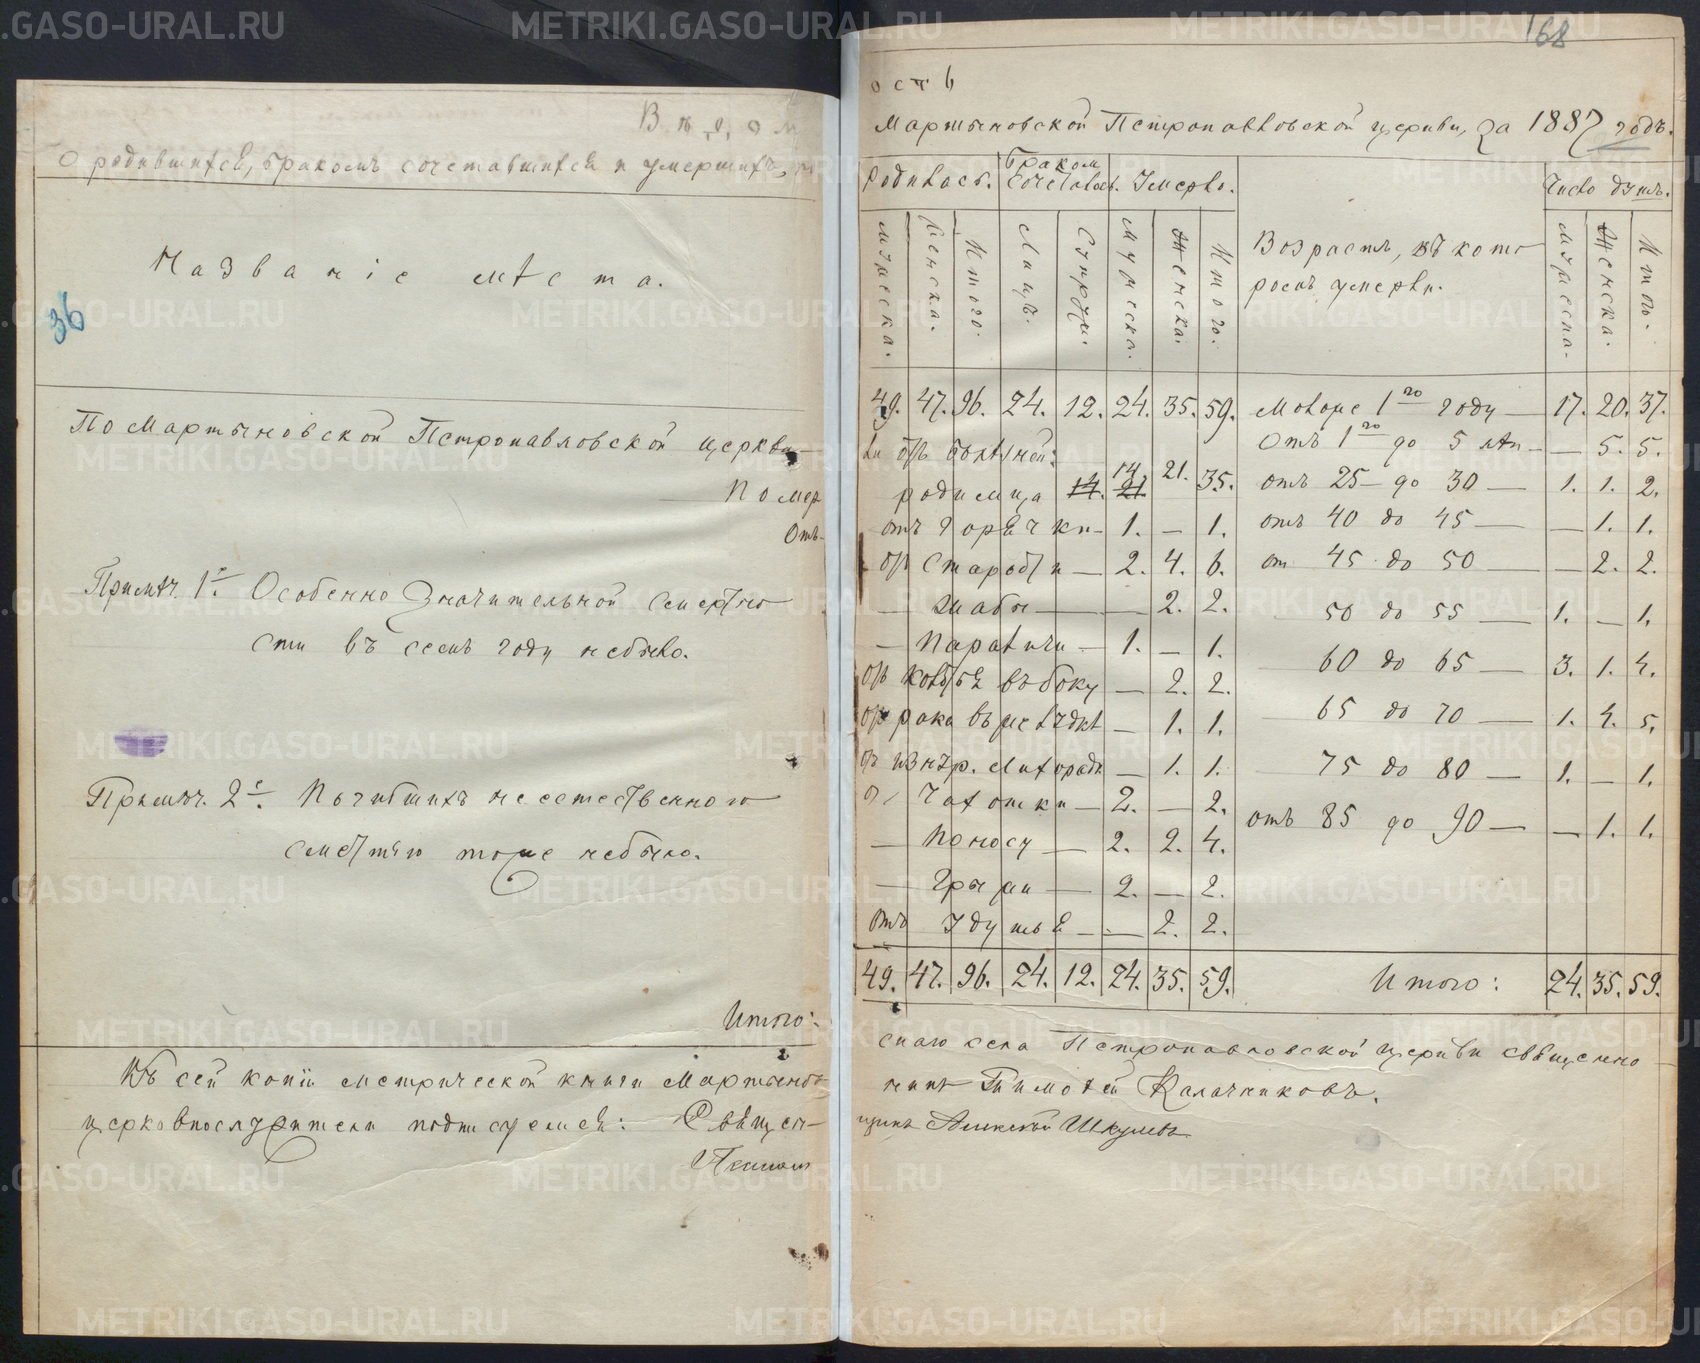 168
Вѣдом
ость
О родившихся, бракомъ сочетавшихся и умершихъ, по
Мартыновской Петропавловской церкви, за 1887 годъ.
Названіе мѣста.
36
Родилось.
Бракомъ сочеталось.
Умерло.
Возрастъ, въ кото
ромъ умерли.
Число душъ.
Мужеска.
Женска.
Итого.
Лицъ.
Супруж.
Мужеска.
Женска.
Итого.
Мужеска.
Женска.
Итого.
По Мартыновской Петропавловской церкви
49. 47. 96. 24. 12. 24. 35. 59. Моложе 1го году — 17. 20. 37.
Помер
ли отъ болѣзней: Отъ 1го до 5 лѣт — — 5. 5.
Отъ
родимца 14. 21. 35. отъ 25 — до 30 — 1. 1. 2.
отъ Горячки — 1. — 1. отъ 40 до 45 — — 1. 1.
отъ Старости — 2. 4. 6. от 45 до 50 — — 2. 2.
— Жабы — — 2. 2. 50 до 55 — 1. — 1.
— Параличи — 1. — 1. 60 до 65 — 3. 1. 4.
отъ колотья въ боку — 2. 2. 65 до 70 — 1. 4. 5.
отъ рака въ желудкѣ — 1. 1.
отъ изнур. лихорадк — 1. 1. 75 до 80 — 1. — 1.
Чахотки — 2. — 2. отъ 85 до 90 — — 1. 1.
— Поносу — 2. 2. 4.
— Грыжи — 2. — 2.
отъ Удушья — — 2. 2.
Примѣч. 1е. Особенно значительной смертно
сти въ семъ году небыло.
Примѣч. 2е. Погибшихъ неестественною
смертью тоже небыло.
Итого:
49. 47. 96. 24. 12. 24. 35. 59. Итого: 24. 35. 59.
Къ сей копіи метрической книги Мартынов
скаго села Петропавловской церкви священно
церковнослужители подписуемся: Священ—
никъ Тимофей Калачниковъ.
Псалом
щикъ Алексѣй Шкулевъ
METRIKI.GASO-URAL.RU